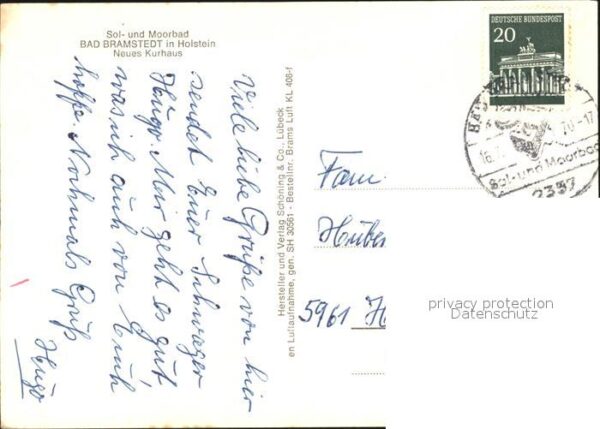 Sol- und Moorbad
BAD BRAMSTEDT in Holstein
Neues Kurhaus
Viele liebe Grüße von hier
sendet Euer Schwager
Hugo. Mir geht es gut
was ich auch von Euch
hoffe. Nochmals Gruß
Hugo
Hersteller und Verlag Schöning & Co., Lübeck
en Luftaufnahme, gen. SH 30561 - Bestellnr. Brams Luft KL 408-f
DEUTSCHE BUNDESPOST
20
BAD
16. 70-17
Sol-und Moorbad
2357
Fam.
Huber
5961 H
privacy protection
Datenschutz